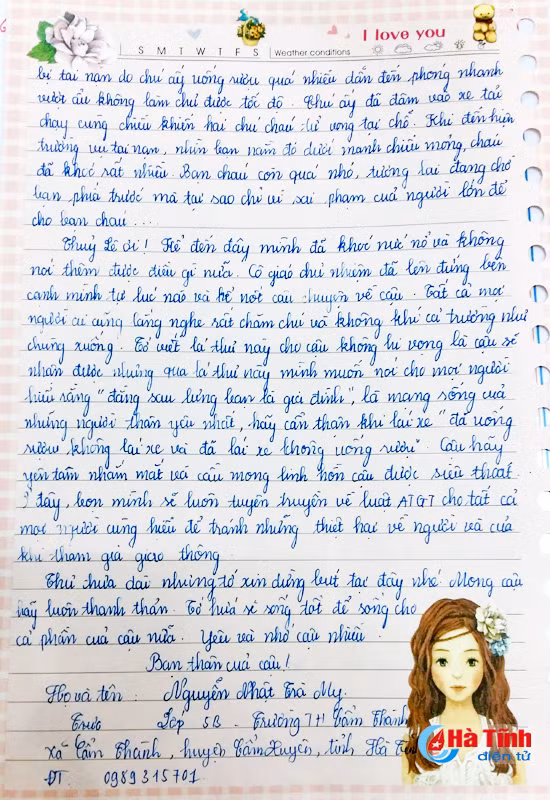 I love you
S M T W T F S Weather conditions
bị tai nạn do chú ấy uống rượu quá nhiều dẫn đến phóng nhanh
vượt ẩu không làm chủ được tốc độ. Chú ấy đã đâm vào xe tải
chạy cùng chiều khiến hai chú cháu tử vong tại chỗ. Khi đến hiện
trường vụ tai nạn, nhìn bạn nằm đó dưới mảnh chiếu mỏng, cháu
đã khóc rất nhiều. Bạn cháu còn quá nhỏ, tương lai đang chờ
bạn phía trước mà tại sao chỉ vì sai phạm của người lớn để
cho bạn cháu....
Thuỷ Lê ơi! Kể đến đây mình đã khóc nức nở và không
nói thêm được điều gì nữa. Cô giáo chủ nhiệm đã lên đứng bên
cạnh mình tự lúc nào và kể nốt câu chuyện về cậu. Tất cả mọi
người ai cũng lắng nghe rất chăm chú và không khí cả trường như
chùng xuống. Tớ viết lá thư này cho cậu không hi vọng là cậu sẽ
nhận được nhưng qua lá thư này mình muốn nói cho mọi người
hiểu rằng "đằng sau lưng bạn là gia đình", là mạng sống của
những người thân yêu nhất, hãy cẩn thận khi lái xe "đã uống
rượu không lái xe và đã lái xe không uống rượu" Cậu hãy
yên tâm nhắm mắt và cầu mong linh hồn cậu được siêu thoát
Ở đây, bọn mình sẽ luôn tuyên truyền về luật ATGT cho tất cả
mọi người cùng hiểu để tránh những thiệt hại về người và của
khi tham gia giao thông
Thư chưa dài nhưng tớ xin dừng bút tại đây nhé. Mong cậu
hãy luôn thanh thản. Tớ hứa sẽ sống tốt để sống cho
cả phần của cậu nữa. Yêu và nhớ cậu nhiều.
Bạn thân của cậu!
Họ và tên: Nguyễn Nhật Trà My.
Lớp 5B - Trường TH Cẩm Thành
xã Cẩm Thành, huyện Cẩm Xuyên, tỉnh Hà
ĐT 0989315701
Hà Tĩnh
điện tử